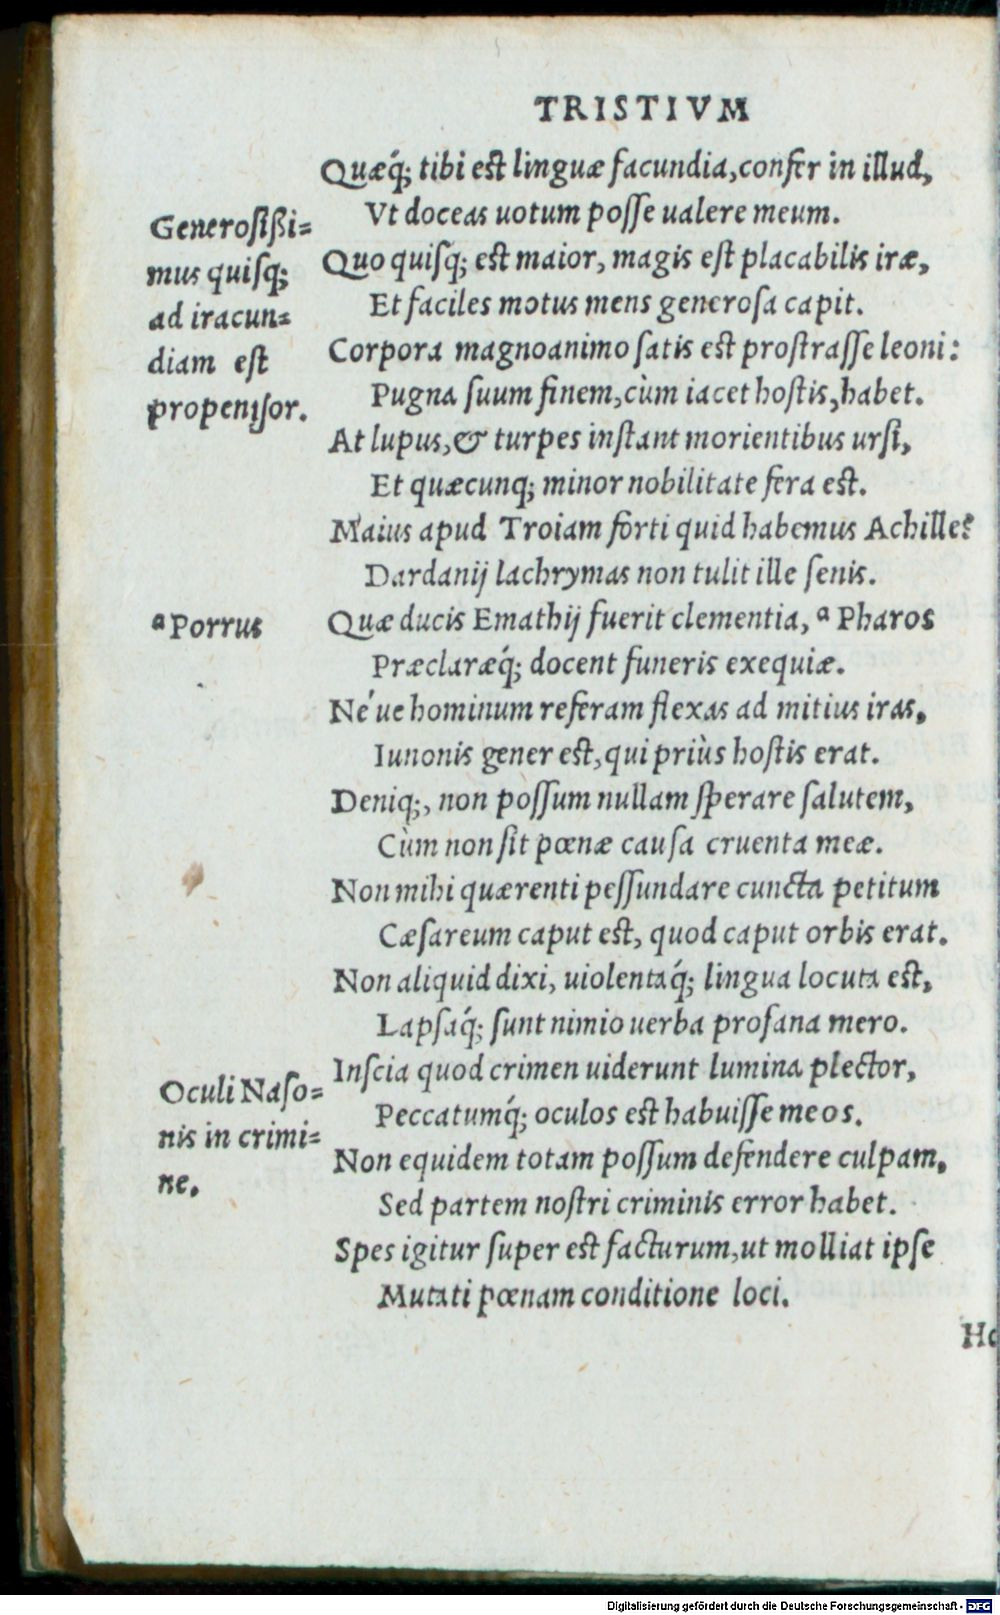 TRISTIVM
Quæq́; tibi est linguæ facundia, confer in illud,
Vt doceas uotum posse ualere meum.
Quo quisq; est maior, magis est placabilis iræ,
Et faciles motus mens generosa capit.
Corpora magnoanimo satis est prostrasse leoni:
Pugna suum finem, cùm iacet hostis, habet.
At lupus, & turpes instant morientibus ursi,
Et quæcunq; minor nobilitate fera est.
Maius apud Troiam forti quid habemus Achille?
Dardanij lachrymas non tulit ille senis.
Quæ ducis Emathij fuerit clementia, ª Pharos
Præclaræq́; docent funeris exequiæ.
Né ue hominum referam flexas ad mitius iras,
Iunonis gener est, qui priùs hostis erat.
Deniq;, non possum nullam sperare salutem,
Cùm non sit pœnæ causa cruenta meæ.
Non mihi quærenti pessundare cuncta petitum
Cæsareum caput est, quod caput orbis erat.
Non aliquid dixi, uiolentaq́; lingua locuta est,
Lapsaq́; sunt nimio uerba profana mero.
Inscia quod crimen uiderunt lumina plector,
Peccatumq́; oculos est habuisse meos.
Non equidem totam possum defendere culpam,
Sed partem nostri criminis error habet.
Spes igitur super est facturum, ut molliat ipse
Mutati pœnam conditione loci.
Generosißi=
mus quisq;
ad iracun=
diam est
propensor.
ª Porrus
Oculi Naso=
nis in crimi=
ne.
Digitalisierung gefördert durch die Deutsche Forschungsgemeinschaft - DFG